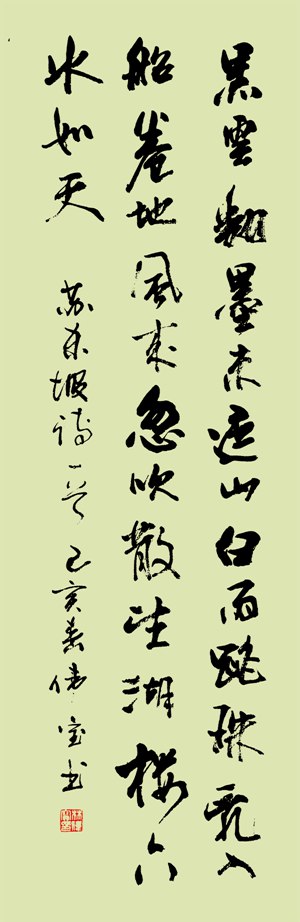 黑雲翻墨未遮山白雨跳珠亂入
船卷地風來忽吹散望湖樓下
水如天
蘇東坡詩一首 己亥春偉宝书